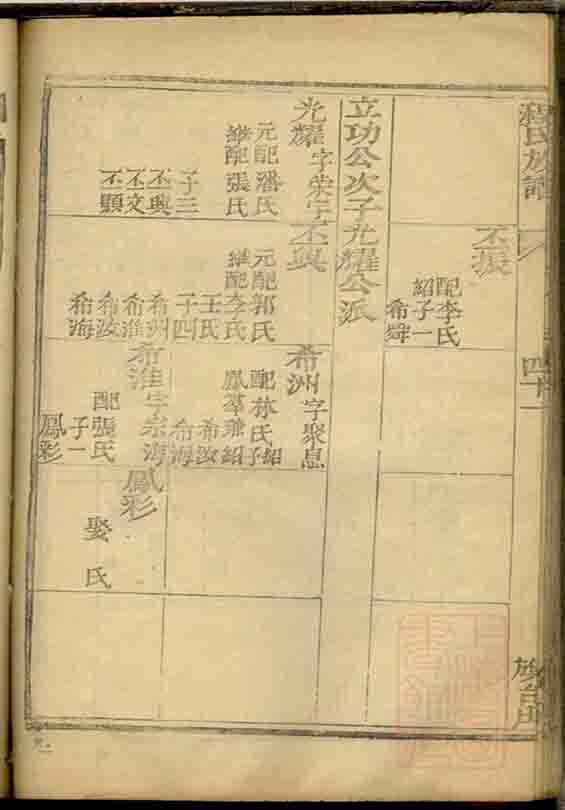 程氏族譜
四十一
丕振
配李氏
紹子一
希舜
立功公次子光耀公派
光耀
字荣宇
元配潘氏
繼配張氏
子三
丕興
丕文
丕顯
丕興
元配郭氏
繼配李氏
王氏
子四
希洲
希淮
希汝
希海
希洲
字聚息
配林氏紹
子
鳳羣兼紹
希汝
希海
希淮
字宗海
配張氏
子一
鳳彩
鳳彩
娶 氏